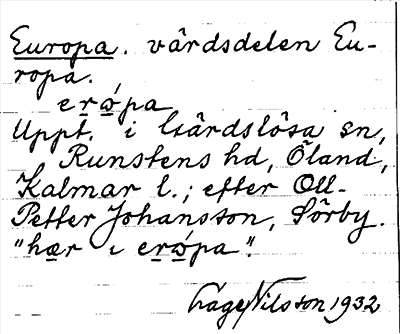 Europa. vårdsdelen Eu-
ropa.
erọ́pa
Uppt. i Gårdslösa sn,
Runstens hd, Öland,
Kalmar l.; efter Oll-
Petter Johansson, Sörby.
"hær i erọ́pa".
Låge Nilsson 1932